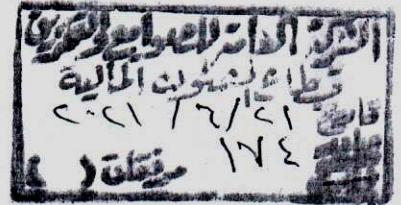 الشركة العامة للصوامع والتخزين
قطاع الشئون المالية
تاريخ ٢٠٢١ / ٦ / ٢١
١٧٤
مرفقات ( )